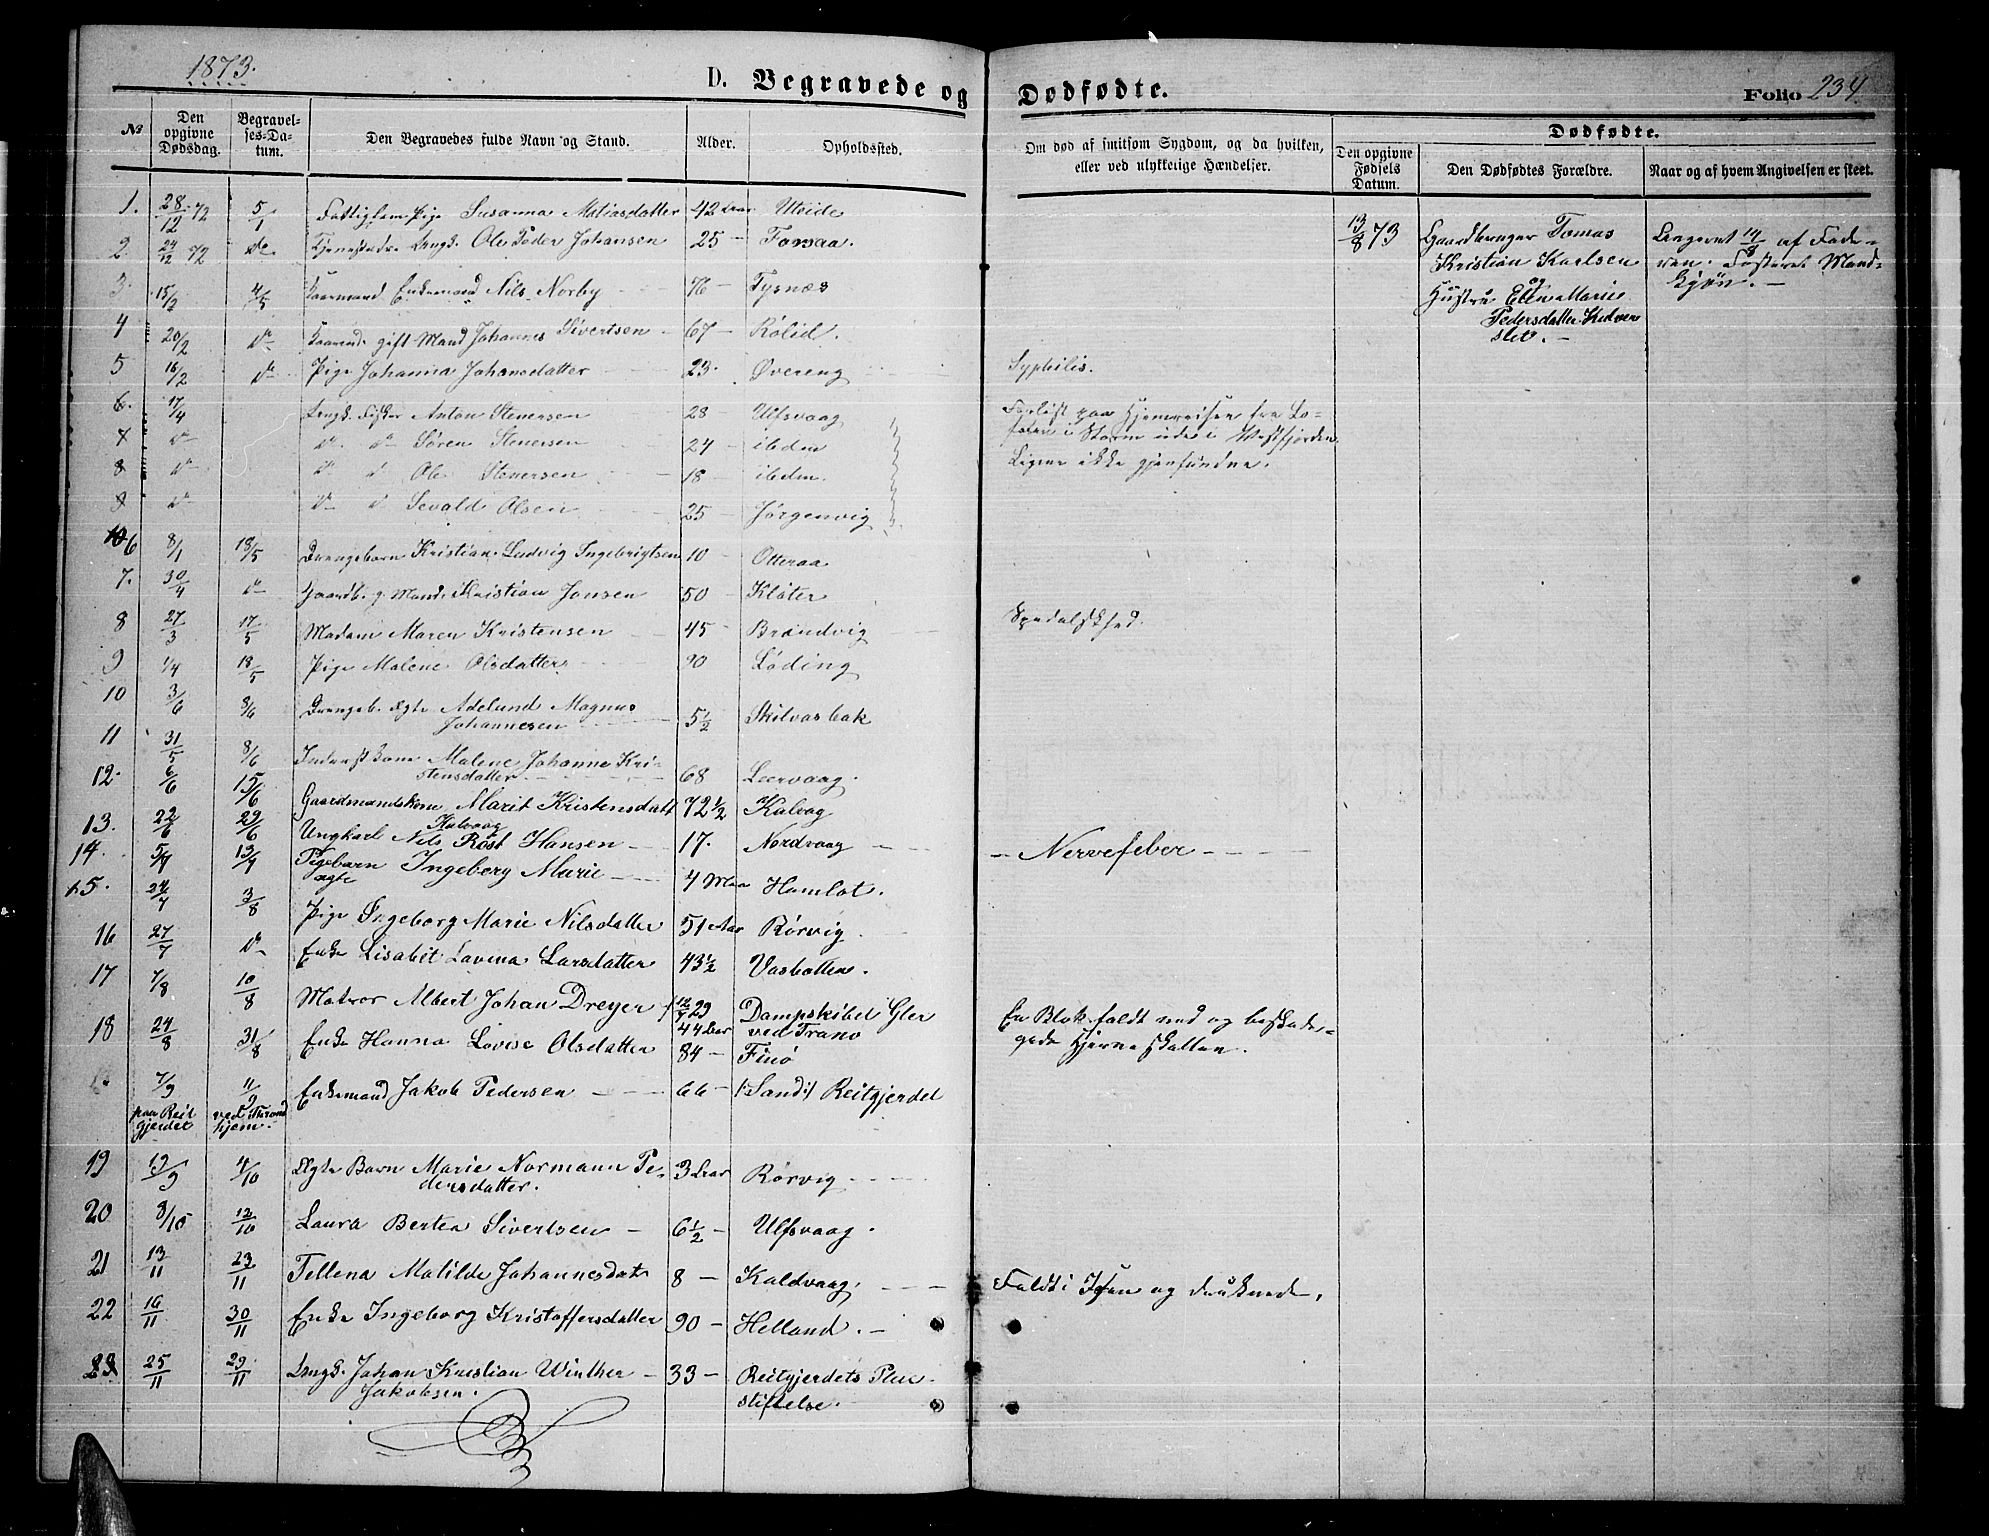 1873.
D. Begravede og
Dødfødte.
Folio 234.
No
Den opgivne Dødsdag.
Begravelses-Datum.
Den Begravedes fulde Navn og Stand.
Alder.
Opholdssted.
Om død af smitsom Sygdom, og da hvilken, eller ved ulykkelige Hændelser.
Dødfødte.
Den opgivne Fødsels Datum.
Den Dødfødtes Forældre.
Naar og af hvem Angivelsen er skeet.
1. 28/12 72 5/1 Fattiglem Pige Susanna Matiasdatter 42 Aar Uteide
2. 24/12 72 do Tjenestedr. Ungk. Ole Peder Johansen 25 – Forsaa.
3. 15/2 4/5 Kaarmand Enkemand Nils Norby 76 – Tysnæs
4 20/2 do gift Mand Johannes Sivertsen 67 – Rølid.
5 16/2 do Pige Johanna Johansdatter 23. Øvereng Syphilis.
6. 17/4 Ungk. Fisker Anton Stenersen 28 – Ulfsvaag
7 do do do Søren Stenersen 24 – ibdm
8 do do d Ole Stenersen 18 – ibdm.
9 do do d Sevald Olsen 25 – Jørgenvig
Forlist paa Hjemreisen fra Lo-
foten i Storm ude i Vestfjorden
Ligene ikke gjenfundne.
10 6 8/1 18/5 Drengebarn Kristian Ludvig Ingebrigtsen 10 – Otteraa
7. 30/4 do Gaardb. g. Mand Kristian Jonsen 50 – Kløter
8 27/3 17/5 Madam Maren Kristensen 45 – Brandvig Spedalskhed.
9 1/4 18/5 Pige Malene Olsdatter 90 Løding
10 3/6 8/6 Drengeb. ægte Adelund Magnus
Johannesen 5½ Skilvasbak
11 31/5 8/6 Inderstkone Malene Johanne Kri-
stensdatter 68 Leervaag.
12. 6/6 15/6 Gaardmandskone Marit Kristensdatt 72½ Kalvag
Kalvaag
13. 22/6 29/6 Ungkarl Nils Røst Hansen – 17. Nordvaag – Nervefeber –
14. 13/7 Pigebarn Ingeborg Marie 4 Maa Hamlot.
ægte
15. 24/7 3/8 Pige Ingeborg Marie Nilsdatter 51 Aar Rørvig
16 27/7 do Enke Lisabet Lavina Larsdatter 43½ Vasbotten.
17 7/8 10/8 Matros Albert Johan Dreyer 44 Aar Dampskibet Gler
ved Tranø
En Blok faldt ned og beskade-
gede Hjerneskallen.
18 24/8 31/8 Enke Hanna Lovise Olsdatter 84 – Finø
7/9 11/9 Enkemand Jakob Pedersen 66 – /:Sand:/ Reitgjerdet
paa Reit
gjerdet
ved Thrond
hjem.
19 19/9 4/10 Ægte Barn Marie Normann Pe-
dersdatter. 3 Aar Rørvig
20 8/10 12/10 Laura Bertea Sivertsen – 6½ – Ulfsvaag.
21 13/11 23/11 Tellena Matilde Johannesdat 8 – Kaldvaag Faldt i Isen og druknede.
22 16/11 30/11 Enke Ingeborg Kristoffersdatter 90 – Helland. –
23 25/11 29/11 Ungk. Johan Kristian Winther – 33 – Reitgjerdets Pleie
Jakobsen. stiftelse.
13/8 73
Gaardbruger Tomas
Kristian Karlsen
og
Hustru Ellen Marie
Pedersdatter
slet. –
14/8 af Fade-
ren. Fosteret Mand-
kjøn. –